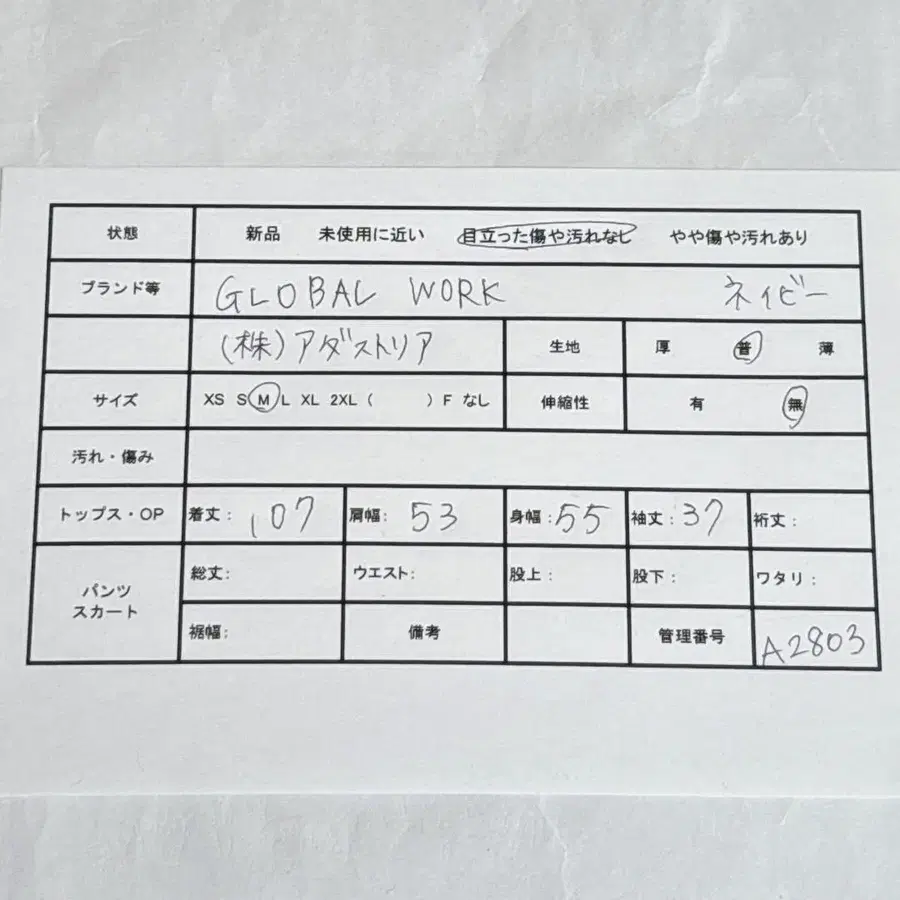 状態 新品 未使用に近い 目立った傷や汚れなし やや傷や汚れあり
ブランド等 GLOBAL WORK ネイビー
(株)アダストリア 生地 厚 普 薄
サイズ XS S M L XL 2XL ( ) F なし 伸縮性 有 無
汚れ・傷み
トップス・OP 着丈: 107 肩幅: 53 身幅: 55 袖丈: 37 裄丈:
パンツ スカート 総丈: ウエスト: 股上: 股下: ワタリ:
裾幅: 備考 管理番号 A2803